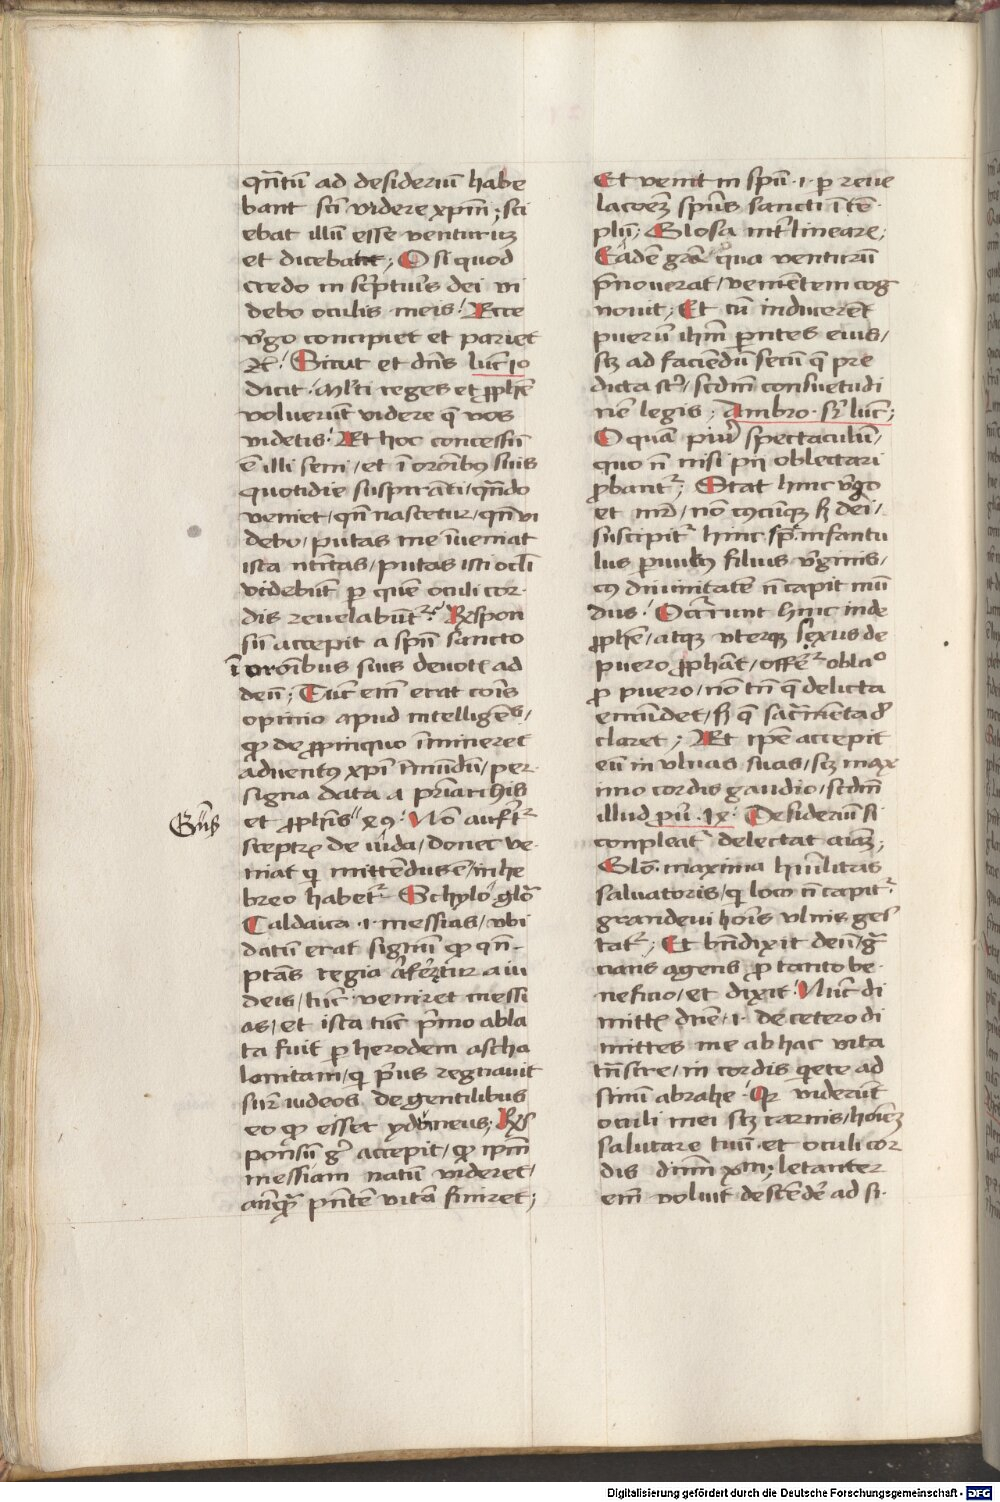 qn̄tū ad desideriū habe
bant scī videre xpm̄; sci
ebat illū esse venturum
et dicebant; O si quod
credo in sc̄pturis dei vi
debo oculis meis! Ecce
v̄go concipiet et pariet
Sicut et dn̄s luc̄ 10
dicit Ml̄ti reges et ꝓphē
voluerūt videre q̄ vos
videtis! Et hoc concessū
ē illi seni / et ī orōnibus suis
quotidie suspirāti / qn̄do
veniet / qn̄ nascetur / qn̄ vi
debo / putas me īveniat
ista nt̄itas / putas isti ocl̄i
videbūt ꝑ quē oculi cor
dis revelabūt Respon
sū accepit a spū sancto
ī orōibus suis devote ad
deū; Tūc em̄ erat cōis
opinio apud intelligētes /
ꝙ de ꝓpinquo īmineret
adventus xp̄i ī mūdū / per
signa data a pr̄iarchis
Gen̄
et ꝓphis No aufer̄t
sceptrū de iuda / donec ve
niat qi mittendus ē / in he
breo habet Schylo glo
Caldaica .i. messias / vbi
datū erat signū ꝙ qn̄
ptās regia aufertur a iu
deis / tūc veniret messi
as / et ista tūc p̄mo abla
ta fuit ꝑ herodem ascha
lonitam / qi p̄us regnavit
sup iudeos de gentilibus
eo ꝙ esset ydumeus; Res
ponsū gͦ accepit / ꝙ ipm̄
messiam natū videret /
anq̄ p̄ntē vitā finiret;
Et venit in spū .i. ꝑ reve
lacōem spūs sancti ī tē
plū; Glosa int̄lineare;
Eadē gra qua venturū
p̄noverat / venientem cog
novit; Et cū inducerēt
puerū ihm̄ ꝑntes eius /
scz ad faciendū secū q̄ pre
dicta st̄ / scdm̄ consuetudi
nē legis; Ambro. sr̄ luc̄;
O quā piū spectaculū /
quo n̄ nisi pij oblectari
ꝓbant̄; Stat hinc v̄go
et mr̄ / nō cuiuscūq̄ sꝫ dei /
suscipit̄ hinc infantu
lus ꝑvulus filius v̄ginis /
cuius divinitatē n̄ capit mū
dus! Occurrunt hinc inde
ꝓphē / atqꝫ vterqꝫ sexus de
puero ꝓphāt / offert̄ oblaᵒ
ꝓ puero / nō tn̄ q̄ delicta
emūdet / sꝫ q̄ sacramenta de
claret; Et ipse accepit
eū in vlnas suas / scz max
imo cordis gaudio / scdm̄
illud pu. IX. Desideriū si
conpleat̄ delectat aīaꝫ;
Glo. maxima hūilitas
salvatoris / qi loco n̄ capit̄
grandevi hōis vlnis ges
tat̄; Et bn̄dixit deū / gr̄a
cians agens ꝓ tanto be
neficio / et dixit! Nūc di
mittis dn̄e .i. de cetero di
mittes me ab hac vita
tn̄sire / in cordis qiete ad
sinū abrahe! Qr viderūt
oculi mei scz carnis / hoieꝫ
salutare tuū et oculi cor
dis dn̄m xm̄; letanter
em̄ voluit descēdē ad si
Digitalisierung gefördert durch die Deutsche Forschungsgemeinschaft - DFG